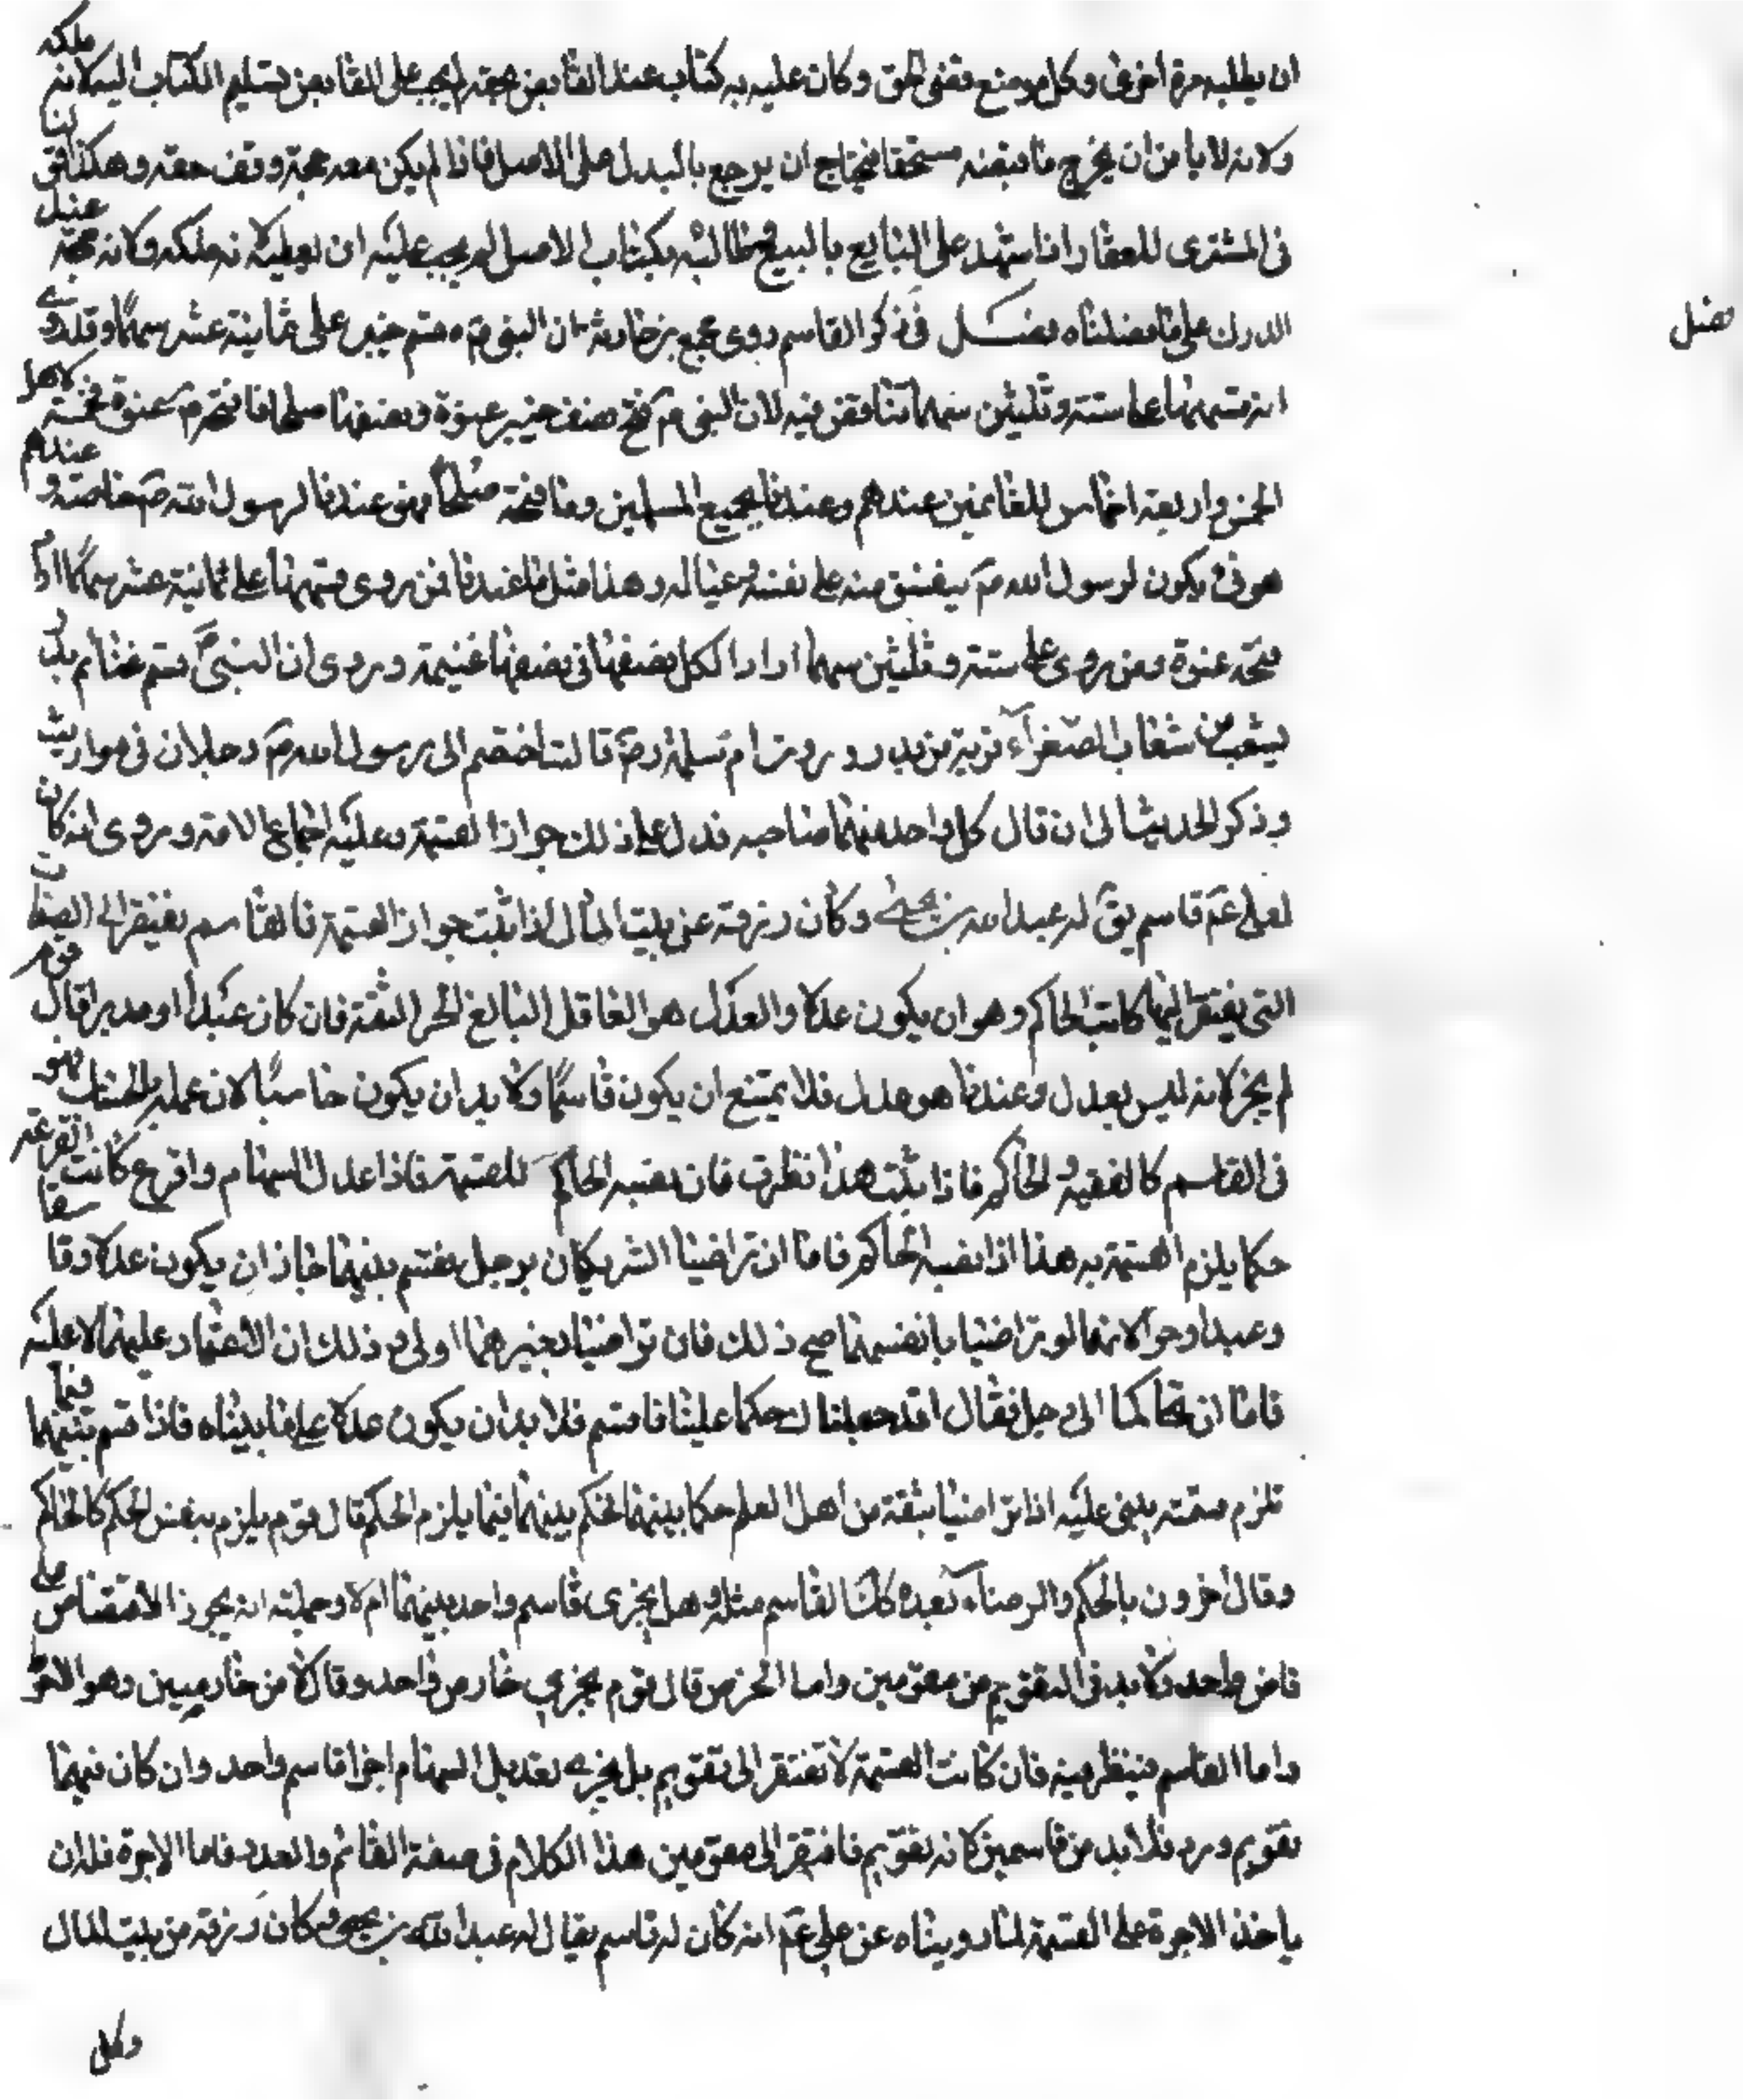 ان يطلبه مرة اخرى وكل من منع وقضى الحق وكان عليه به كتاب عند القابض بحقه لم يجب على القابض تسليم الكتاب اليه لانه ملكه
ولانه لا يامن ان يخرج ما قبضه مستحقا فيحتاج ان يرجع بالبدل على الاصل فاذا لم يكن معه حجة وقف حقه وهكذا قولنا
فى المشترى للعقار اذا شهد على البايع بالبيع وطالبه بكتاب الاصل لم يجب عليه ان يعطيه لانه ملكه ولانه حجة عند
الدرك على ما فصلناه فصــل فى ذكر القاسم روى مجمع بن حارثة ان النبى ص قسم خيبر على ثمانية عشر سهمًا وقد روى
انه قسمها على ستة وثلثين سهما تناقض فيه لان النبى ص فتح نصف خيبر عنوة ونصفها صلحا فما فتحه عنوة فخمسه لاهل
الخمس واربعة اخماس للغانمين عندهم وعندنا لجميع المسلمين وما فتحه صلحًا فهى عندنا لرسول الله ص خاصة وعندهم
هو فىء يكون لرسول الله ص ينفق منه على نفسه وعياله وهذا مثل ما عندنا فمن روى قسمها على ثمانية عشر سهمًا اراد ما
فتحه عنوة ومن روى على ستة وثلثين سهما اراد الكل نصفها فى نصفها غنيمة وروى ان النبى ص قسم غنائم بدر
بشعب من شعاب الصفراء قريب من بدر وروت ام سلمة رض قالت اختصم الى رسول الله ص رجلان فى مواريث
وذكر الحديث الى ان قال كل واحد منهما صاحبه فدل على ذلك جواز القسمة وعليه اجماع الامة وروى انه كان
لعلى عم قاسم يق له عبد الله بن يحيى وكان رزقه عن بيت المال اذا ثبت جواز القسمة فالقاسم يفتقر الى الصفات
التى يفتقر اليها كاتب الحاكم وهو ان يكون عدلا والعدل هو العاقل البالغ الحر الثقة فان كان عبدا او مدبرا قال قوم
لم يجز لانه ليس بعدل وعندنا هو عدل فلا يمتنع ان يكون قاسمًا ولا بد ان يكون حاسبًا لان عمله بالحساب فهو
فى القاسم كالفقيه والحاكم فاذا ثبت هذا نظرت فان نصبه الحاكم للقسمة فاذا عدل السهام واقرع كانت القرعة
حكما يلزم القسمة به هذا اذا نصبه الحاكم فاما ان تراضيا الشريكان برجل يقسم بينهما جاز ان يكون عدلا وفاسقا
وعبدا وحرا لانهما لو تراضيا بانفسهما صح ذلك فان تراضيا بغيرهما اولى من ذلك ان الاعتماد عليهما لا عليه
فاما ان تحاكما الى رجل فقال قد جعلناك حكما علينا فاقسم فلا بد ان يكون عدلا على ما بيناه فاذا قسم بينهما فبما
تلزم قسمته يبنى عليه اذا تراضيا بثقة من اهل العلم حكما بينهما فحكم بينهما فبما يلزم الحكم قال قوم يلزم بنفس الحكم كالحاكم
وقال اخرون بالحكم والرضاء بعده كك القاسم مثله وهل يجزى قاسم واحد بينهما ام لا وجملته انه يجوز الاقتصار على
قاض واحد ولا بد فى التقويم من مقومين واما الخرص قال قوم يجزى خارص واحد وقال لا من خارصين وهو الاقوى
واما القاسم فينظر فيه فان كانت القسمة لا تفتقر الى تقويم بل يجزى تعديل السهام اجزا قاسم واحد وان كان فيهما
تقويم ورد فلا بد من قاسمين لانه تقويم فافتقر الى مقومين هذا الكلام فى صفة القاسم والعدد فاما الاجرة فله ان
ياخذ الاجرة على القسمة لما رويناه عن على عم انه كان له قاسم يقال له عبد الله بن يحيى وكان رزقه من بيت المال
وكل
فصل